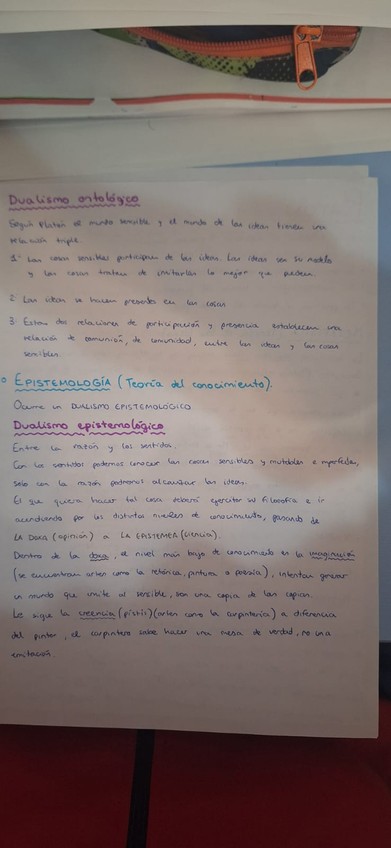 Dualismo ontológico
Según Platón el mundo sensible y el mundo de las ideas tienen una
relación triple.
1- Las cosas sensibles participan de las ideas. Las ideas son su modelo
y las cosas tratan de imitarlas lo mejor que pueden.
2 Las ideas se hacen presente en las cosas
3 Estas dos relaciones de participación y presencia establecen una
relación de comunión, de comunidad, entre las ideas y las cosas
sensibles.
EPISTEMOLOGÍA (Teoría del conocimiento).
Ocurre un DUALISMO EPISTEMOLÓGICO
Dualismo epistemológico
Entre la razón y los sentidos.
Con los sentidos podemos conocer las cosas sensibles y mutables e imperfectas,
solo con la razón podremos alcanzar las ideas.
El que quiera hacer tal cosa deberá ejercitar su filosofía e ir
ascendiendo por los distintos niveles de conocimiento, pasando de
LA DOXA (opinión) a LA EPISTEMEA (ciencia).
Dentro de la doxa, el nivel más bajo de conocimiento es la imaginación
(se encuentran artes como la retórica, pintura o poesía), intentan generar
un mundo que imite al sensible, son una copia de las copias.
Le sigue la creencia (pistis) (artes como la carpintería) a diferencia
del pintor, el carpintero sabe hacer una mesa de verdad, no una
imitación